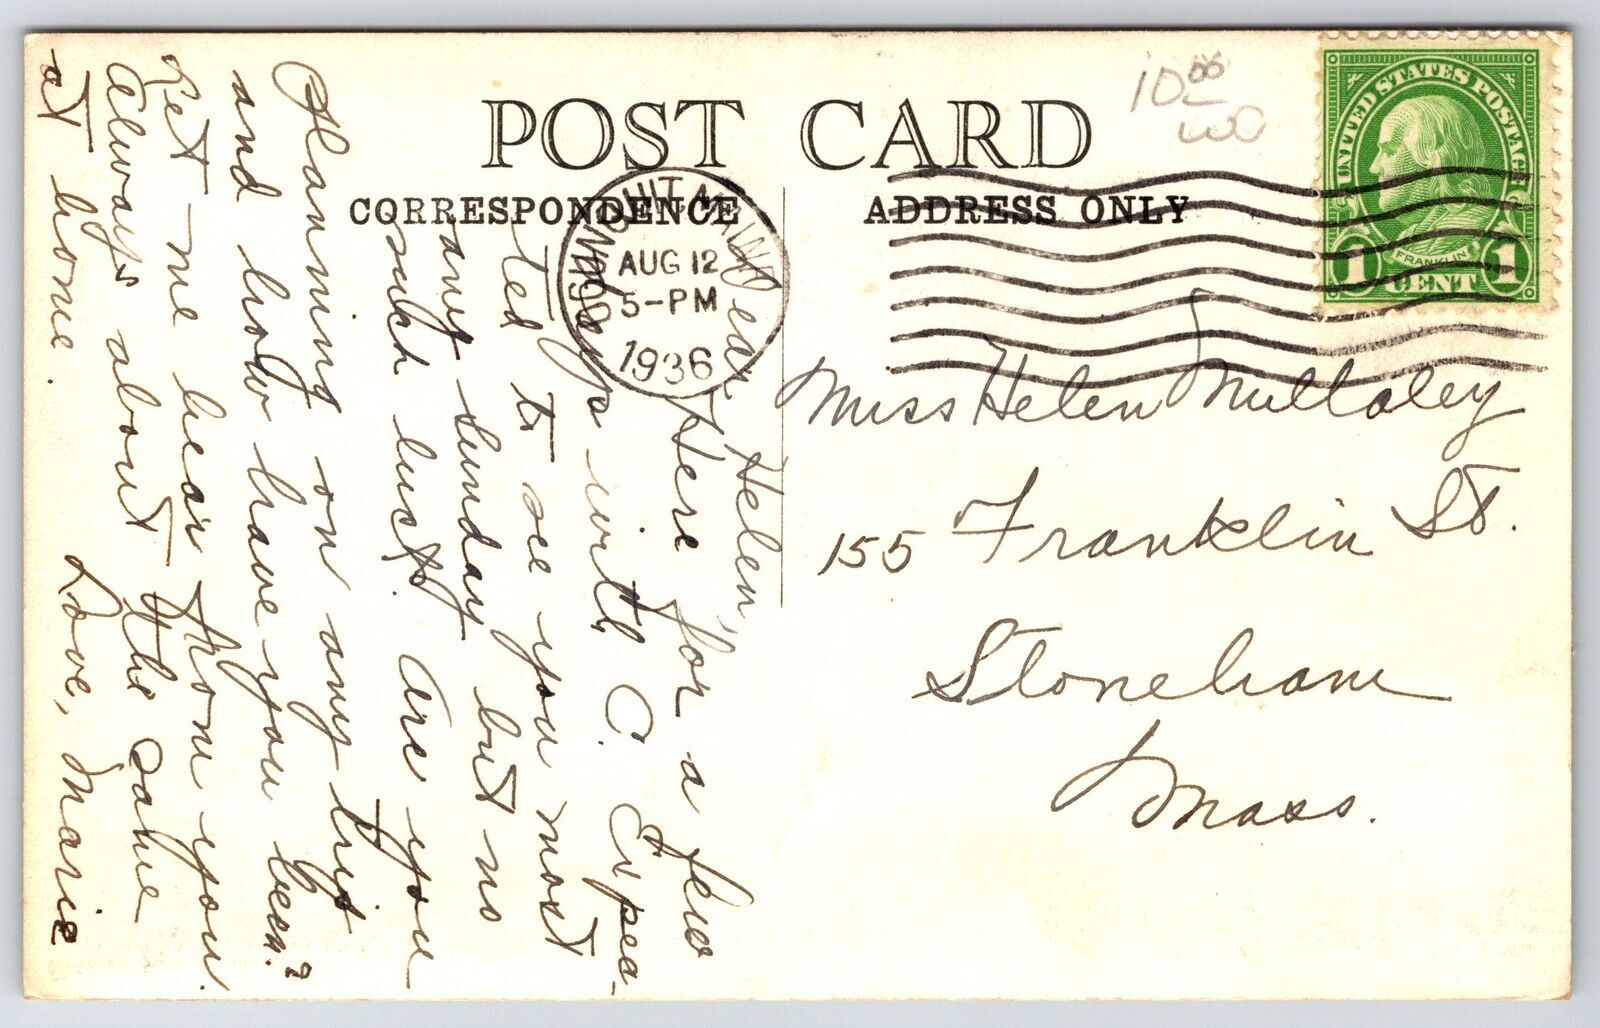 POST CARD
CORRESPONDENCE
ADDRESS ONLY
10.00
WC
UNITED STATES POSTAGE
FRANKLIN
1 CENT 1
OGUNQUIT MAINE
AUG 12
5-PM
1936
Miss Helen Mullaley
155 Franklin St.
Stoneham
Mass.
Dear Helen,
Here for a few
days with C. Expec-
ted to see you most
any Sunday but no
such luck. Are you
planning on any trip
and how have you been?
Let me hear from you.
Always about the same
at home.
Love, Marie